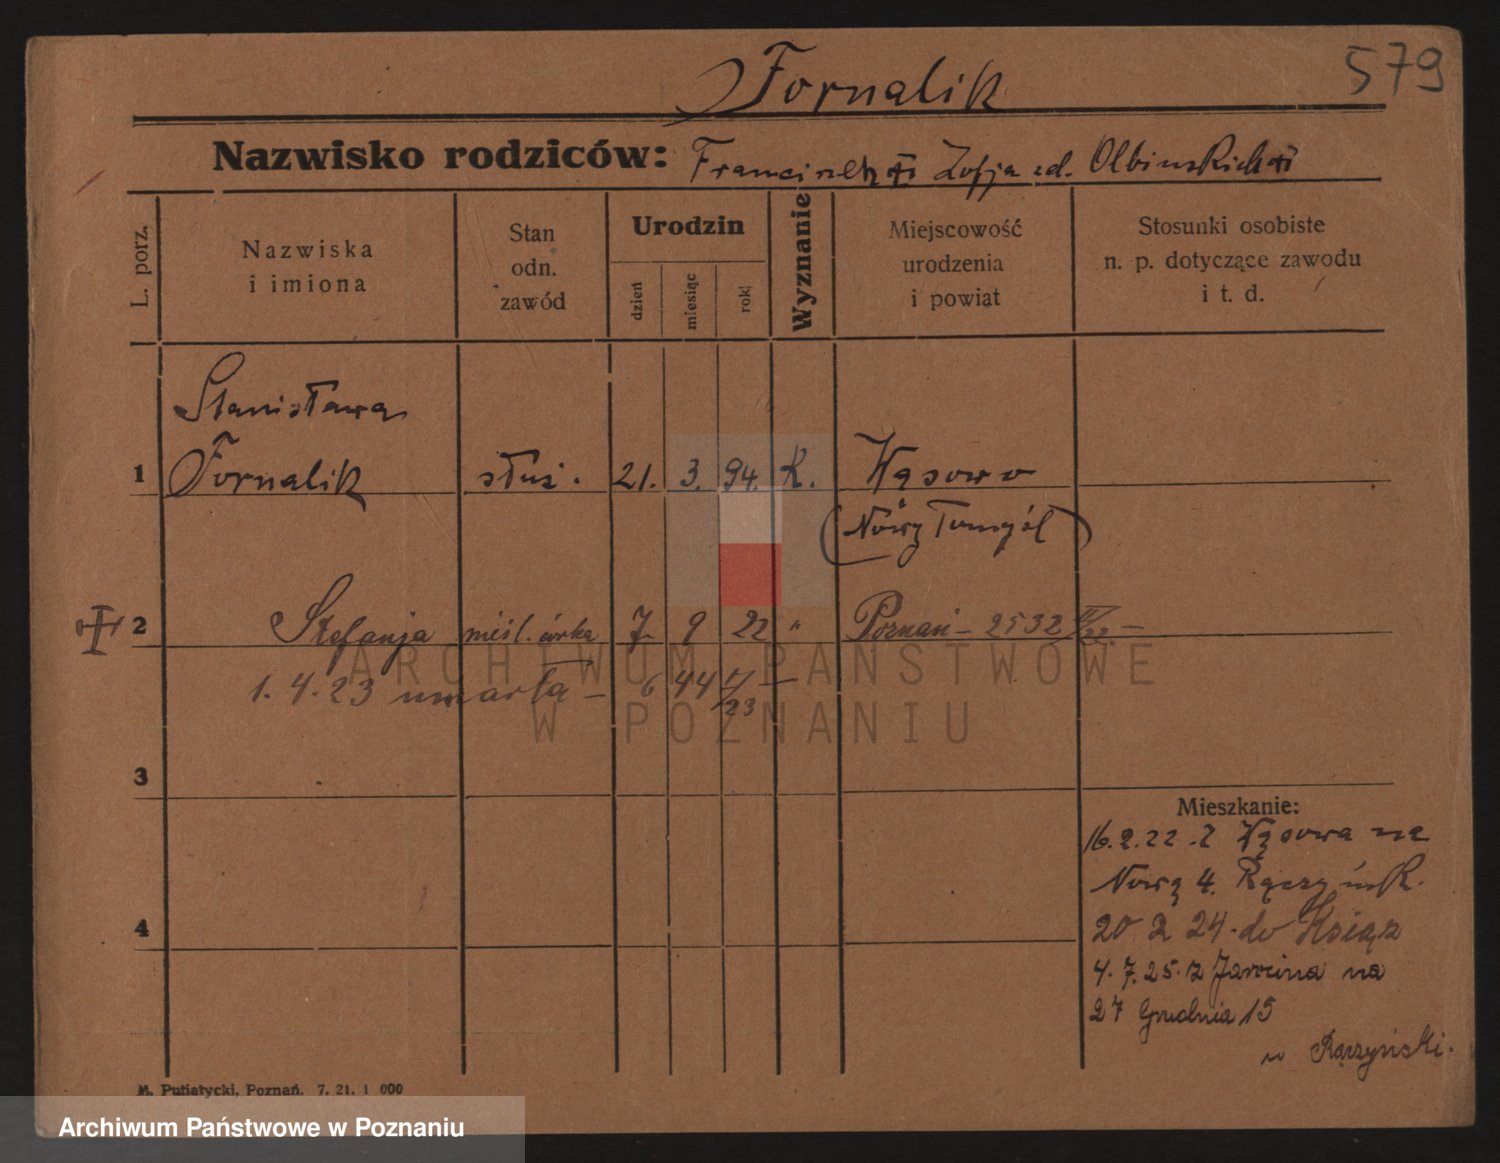 Fornalik 579
Nazwisko rodziców: Franciszek Zofja zd. Olbinskich
L. porz.
Nazwiska
i imiona
Stan
odn.
zawód
Urodzin
dzień
miesiąc
rok
Wyznanie
Miejscowość
urodzenia
i powiat
Stosunki osobiste
n. p. dotyczące zawodu
i t. d.
Stanisława
1 Fornalik służ. 21. 3. 94. K. Wąsowo
(Nowy Tomyśl)
2 Stefanja nieśl. córka 7 9 22 " Poznań - 2532 IV/22. -
ARCHIWUM PAŃSTWOWE
1. 4. 23 umarła - 6 44 IV/23 -
W POZNANIU
3
4
Mieszkanie:
16. 2. 22 - z Wąsowa na
Nową 4.
20 2 24 - do Książ
4. 7. 25. z Jarocina na
27 Grudnia 15
u Rączyński.
M. Putiatycki, Poznań. 7. 21. 1 000
Archiwum Państwowe w Poznaniu